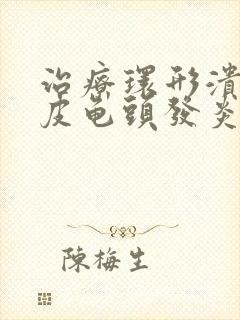 治療環形潰
皮龟頭發炎
陳梅生